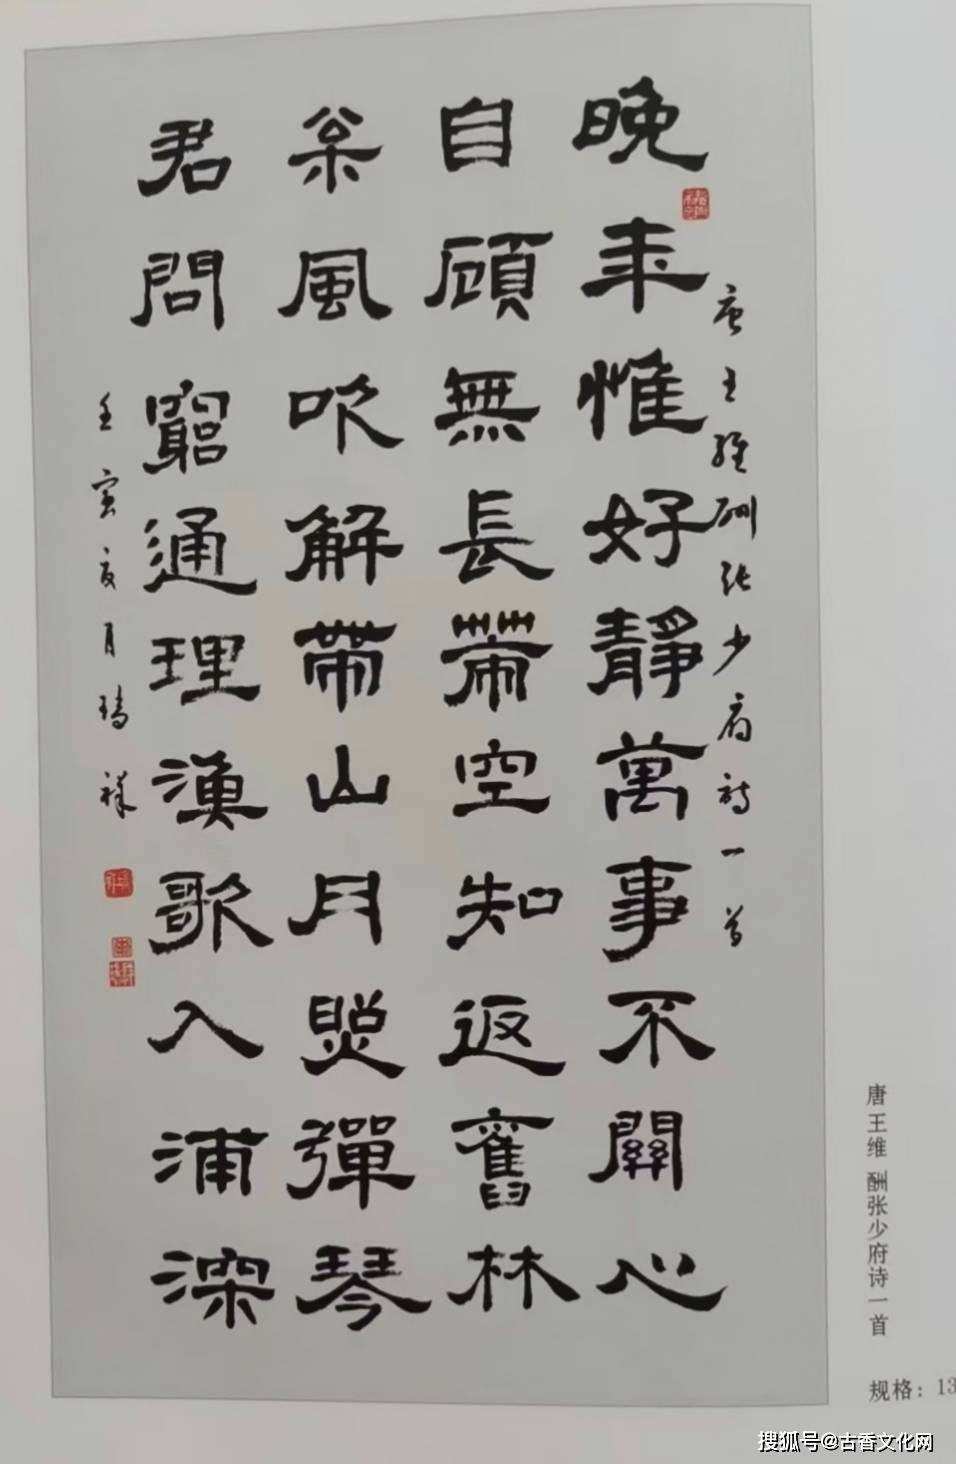 唐王維酬张少府诗一首
晚年惟好靜萬事不關心
自顧無長策空知返舊林
枀風吹解帶山月照彈琴
君問窮通理漁歌入浦深
壬寅夏月瑞祥
唐 王维 酬张少府诗一首
规格：13
搜狐号@古香文化网